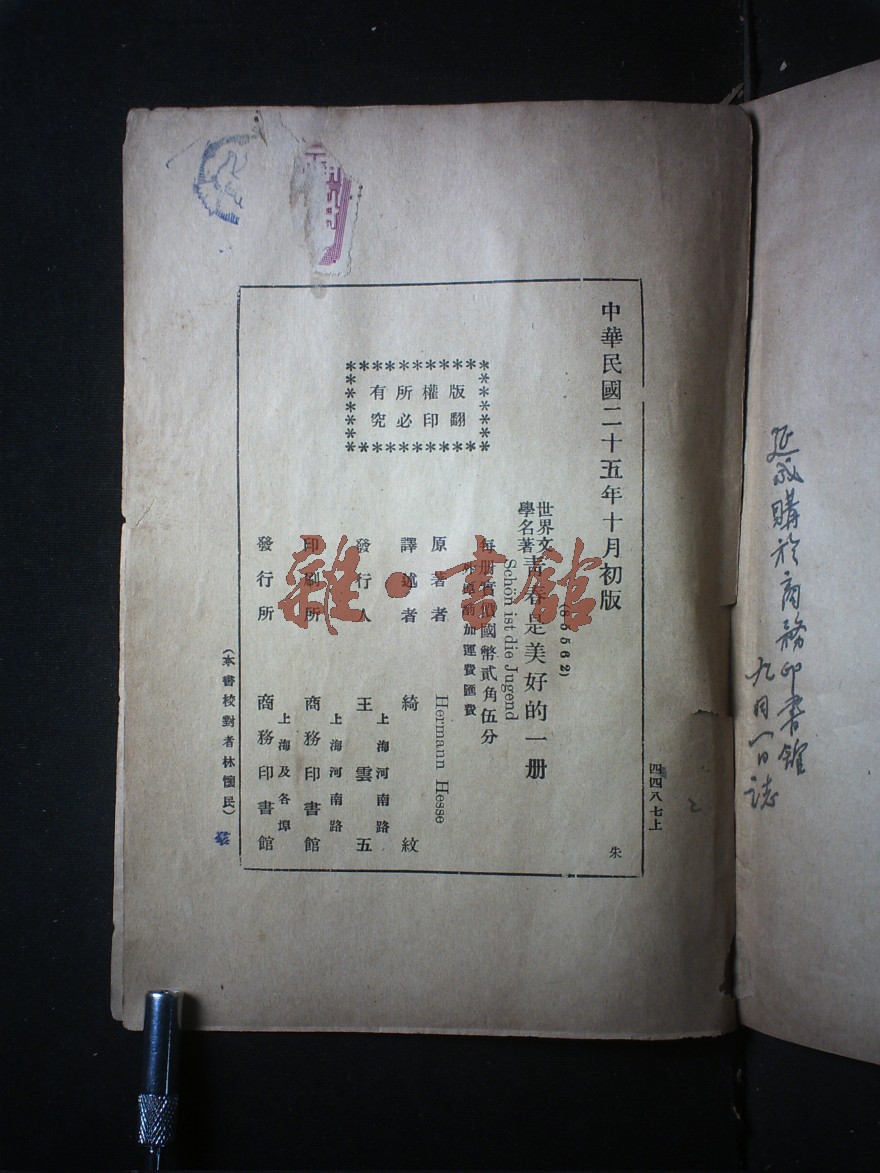 購於商務印書館
九月一日誌
四四八七上
中華民國二十五年十月初版
朱
(35562)
世界文學名著
青春是美好的一册
Schön ist die Jugend
每册實價國幣貳角伍分
外埠酌加運費匯費
版權所有
翻印必究
原著者 Hermann Hesse
譯述者 綺紋
發行人 王雲五
上海河南路
印刷所 商務印書館
上海河南路
發行所 商務印書館
上海及各埠
(本書校對者林懷民)
雜·書館